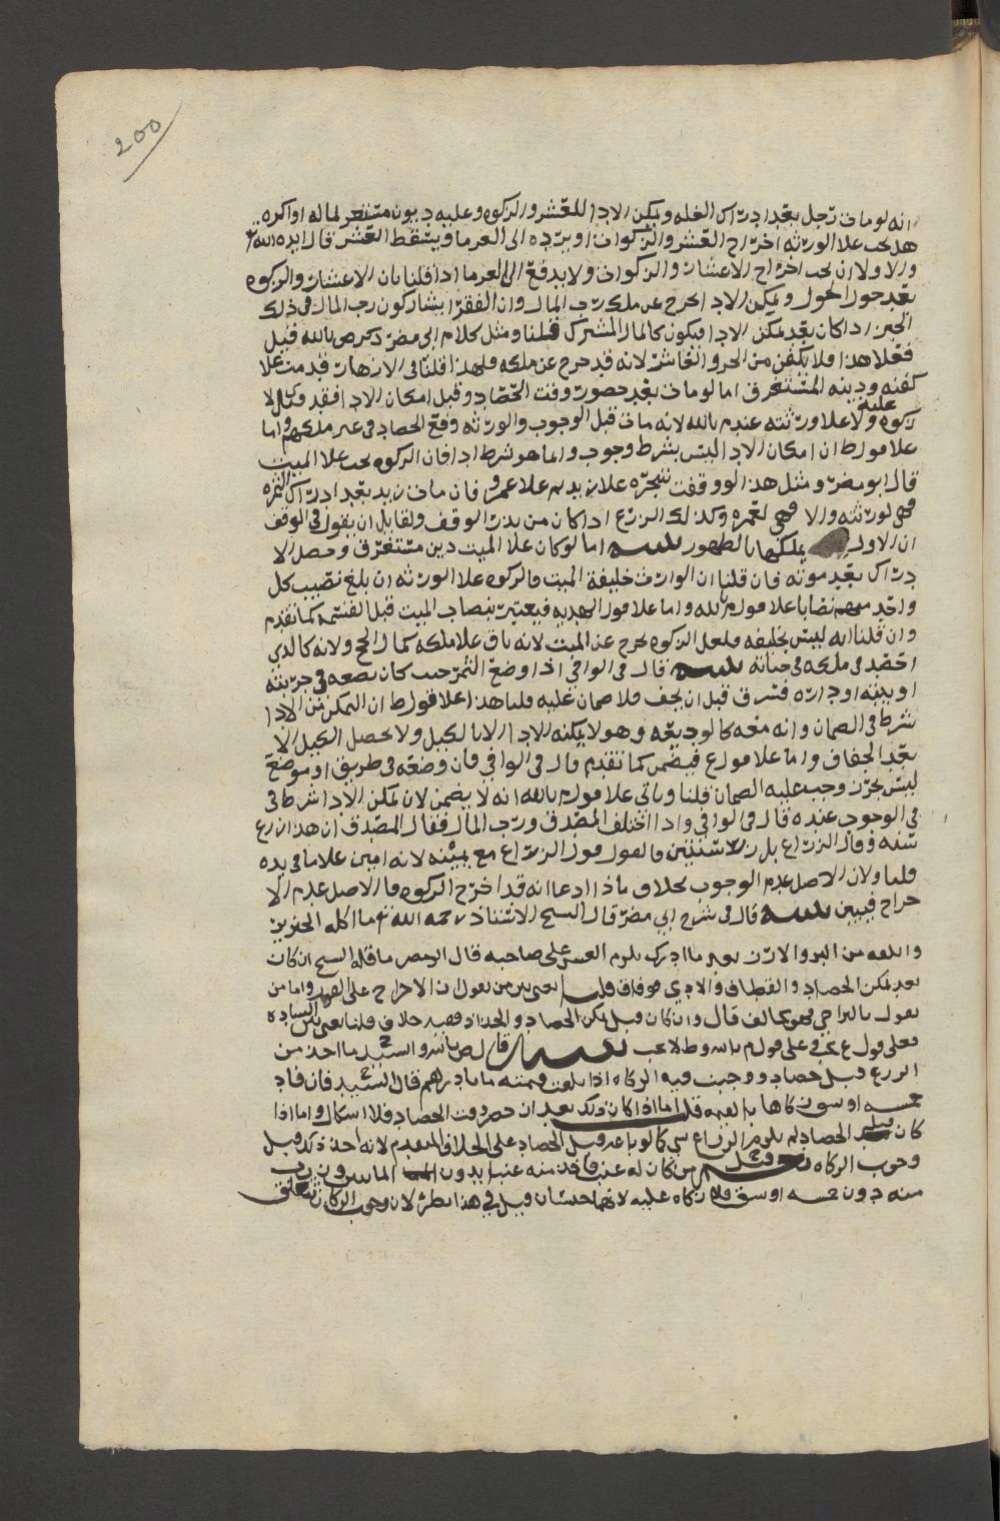 200
انه لو مات رجل بعد ادراك الغله ويمكن الادا للعشر والزكوه وعليه ديون مستغر لماله او اكره
هل يجب علا الورثه اخراج العشر والزكوات او يرده الى الغرما ويسقط العشر قال ايده الله
والاولا ان يجب اخراج الاعشار والزكوات ولا يدفع الى الغرما اذا قلنا بان الاعشار والزكوه
بعد حول الحول ويمكن الادا يخرج عن ملك رب المال وان الفقرا يشاركون رب المال في ذلك
الجزء اذا كان بعد تمكن الادا فيكون كالمال المشترك قلنا ومثل كلام ابي مضر ذكر ص بالله قيل
فعلا هذا فلا يكفن من الحر والعاشر لانه قد خرج عن ملكه ولهذا قلنا في الازهار قدمت علا
كفنه ودينه المستغرق اما لو مات بعد حضور وقت الحصاد وقبل امكان الادا فقد قيل لا
زكوه عليه ولا علا ورثته عند م بالله لانه مات قبل الوجوب والورثه وقع الحصاد في غير ملكهم واما
علا قول ط ان امكان الادا ليس بشرط وجوب وانما هو شرط ادا فان الزكوه تجب علا الميت
قال ابو مضر ومثل هذا لو وقفت شجره علا زيد ثم علا عمرو فان مات زيد بعد ادراك الثمره
فهي لورثته والا فهي لعمره وكذلك الزرع اذا كان من بذر الوقف ولقابل ان يقول في الوقف
ان الاول يملكها بالطهور تنبيه اما لو كان علا الميت دين مستغرق وحصل الا
دراك بعد موته فان قلنا ان الوارث خليفة الميت فالزكوه علا الورثه ان بلغ نصيب كل
واحد منهم نصابا علا قول م بالله واما علا قول الهدويه فيعتبر بنصاب الميت قبل القسمه كما تقدم
وان قلنا انه ليس بخليفه فلعل الزكوه تخرج عن الميت لانه باق علا ملكه كمال الحج ولانه كالذي
احصد في ملكه في حياته تنبيه قال في الوافي اذا وضع الثمر حيث كان يضعه في جرينه
او بيته او داره فسرق قبل ان يجف فلا ضمان عليه قلنا هذا علا قول ط ان التمكن من الادا
شرط في الضمان وانه معه كالوديعه وهو لا يمكنه الادا الا بالكيل ولا يحصل الكيل الا
بعد الجفاف واما علا قول ع فيضمن كما تقدم قال في الوافي فان وضعه في طريق او موضع
ليس بحرز وجب عليه الضمان قلنا وياتي علا قول م بالله انه لا يضمن لان تمكن الادا شرط في
في الوجوب عنده قال في الوافي واذا اختلف المصدق ورب المال فقال المصدق ان هذا زرع
سنه وقال الزراع بل زرع سنتين فالقول قول الزراع مع يمينه لانه امين علا ما في يده
قلنا ولان الاصل عدم الوجوب بخلاف ما اذا ادعا انه قد اخرج الزكوه فالاصل عدم الا
خراج فيبين تنبيه قال في شرح ابي مضر قال الشيخ الاستاذ رحمه الله تع ما اكله الخنزير
والعه من البر والارز بعد ما ادرك يلزم العشر على صاحبه قال ابو مضر ما قاله الشيخ ان كان
بعد تمكن الحصاد والقطاف والادى فوفاق قلنا يعني بين من يقول ان الاخراج على الفور واما من
يقول بالتراخي فهو يخالف قال وان كان قبل تمكن الحصاد والجذاذ ففيه خلاف قلنا يعني بين الساده
فعلى قول ع يجب وعلى قول م بالله وط لا يجب تنبيه قال ص بالله والسيد ما اخذ من
الزرع قبل حصاد ووجبت فيه الزكاه اذا بلغت قيمته مايتا درهم قال السيد فان قاد
خمسه اوسق زكاها بالقيمه قلنا اما اذا كان ذلك بعد ان حضر وقت الحصاد فلا اشكال واما اذا
كان قبل الحصاد لم يلزم الزراع شي كما لو باعه قبل الحصاد على الخلاف المتقدم لانه اخذ ذلك قبل
وجوب الزكاه قيل ومن كان له عنب فاخذ منه عنبا بدون المايتين ومن زبيب
منه دون خمسه اوسق فلا زكاه عليه لانهما جنسان قيل في هذا نظر لان وجوب الزكاه يتعلق